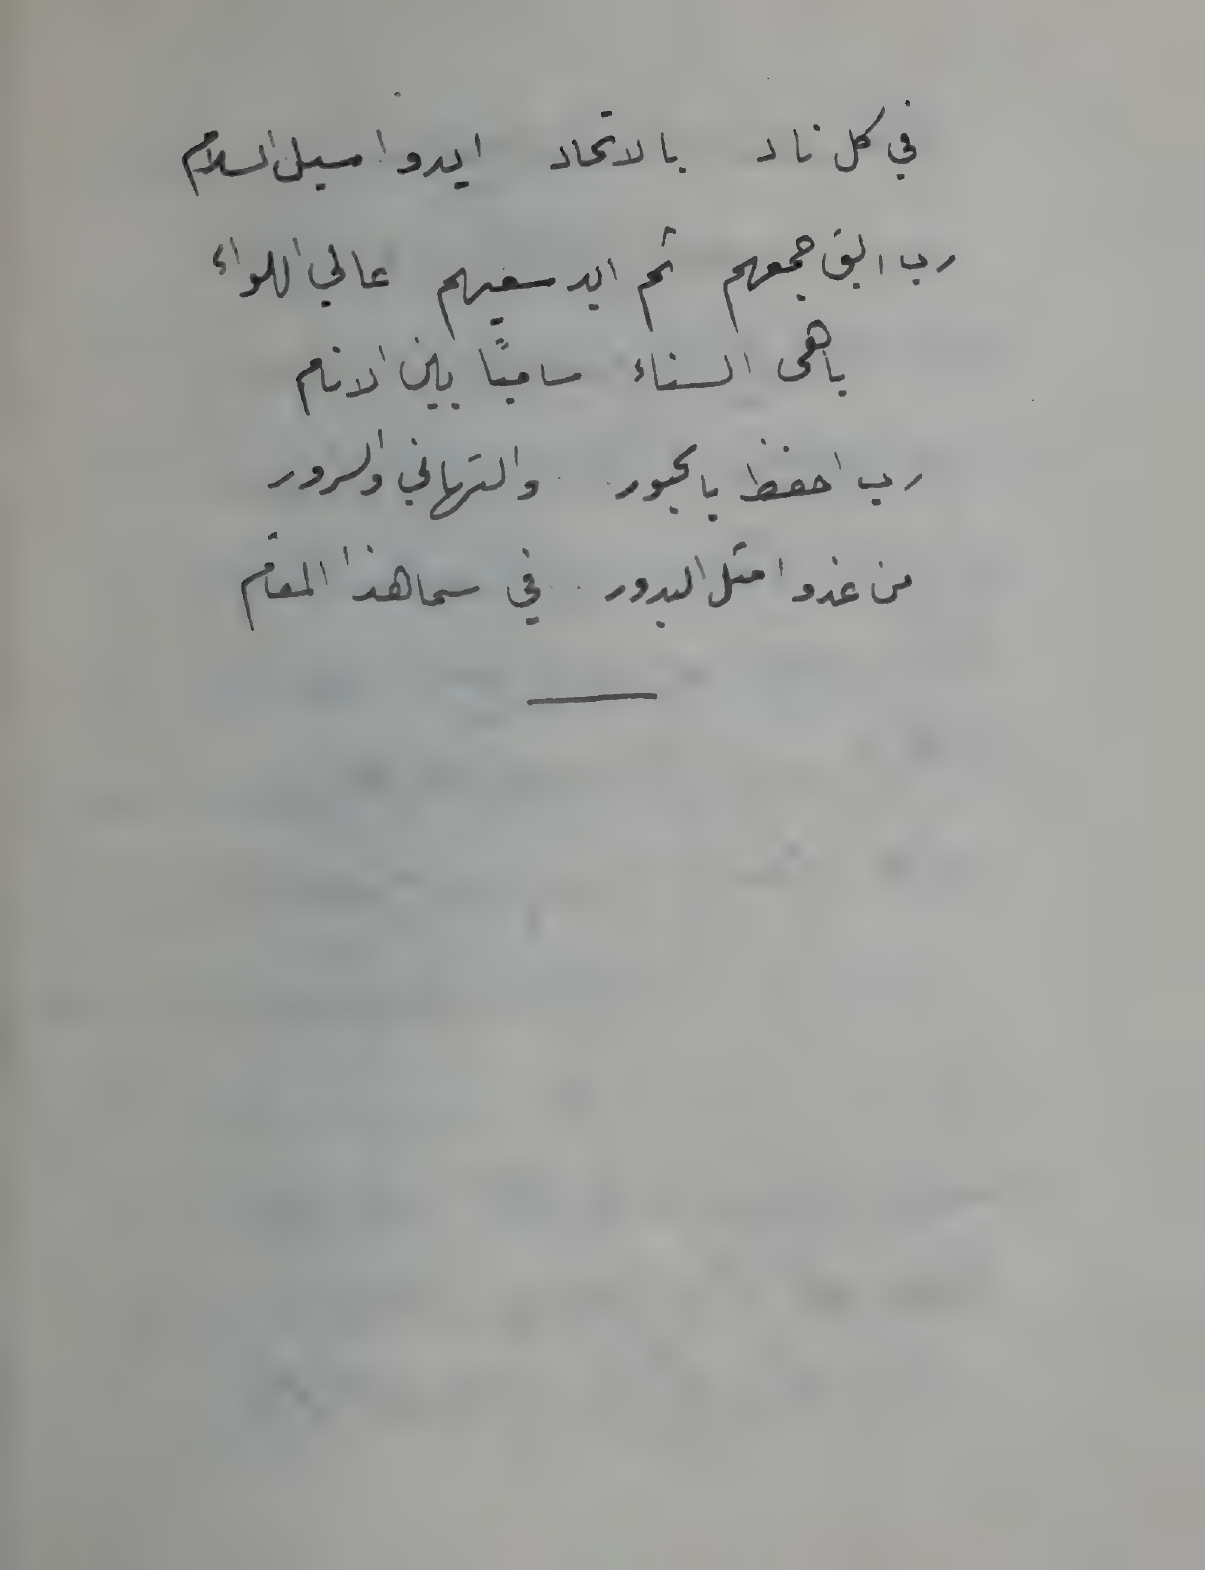 في كل ناد بالاتحاد ايدوا سبل السلام
رب ابق جمعهم ثم ايد سعيهم عالي اللواء
باهى السناء ساميًا بين الانام
رب احفظ بالحبور والتهاني والسرور
من غدوا مثل البدور في سما هذا المقام